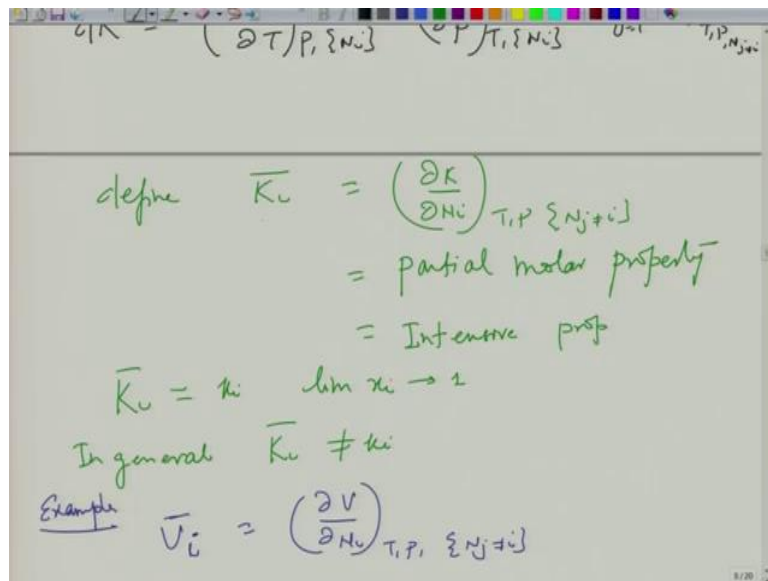 dK = (∂T)P, {Ni} (∂P)T, {Ni} i=1 T,P,Nj≠i
define K̄i = (∂K/∂Ni) T,P {Nj≠i}
= partial molar property
= Intensive prop
K̄i = ki lim xi → 1
In general K̄i ≠ ki
Example V̄i = (∂V/∂Ni) T,P, {Nj≠i}
8/20